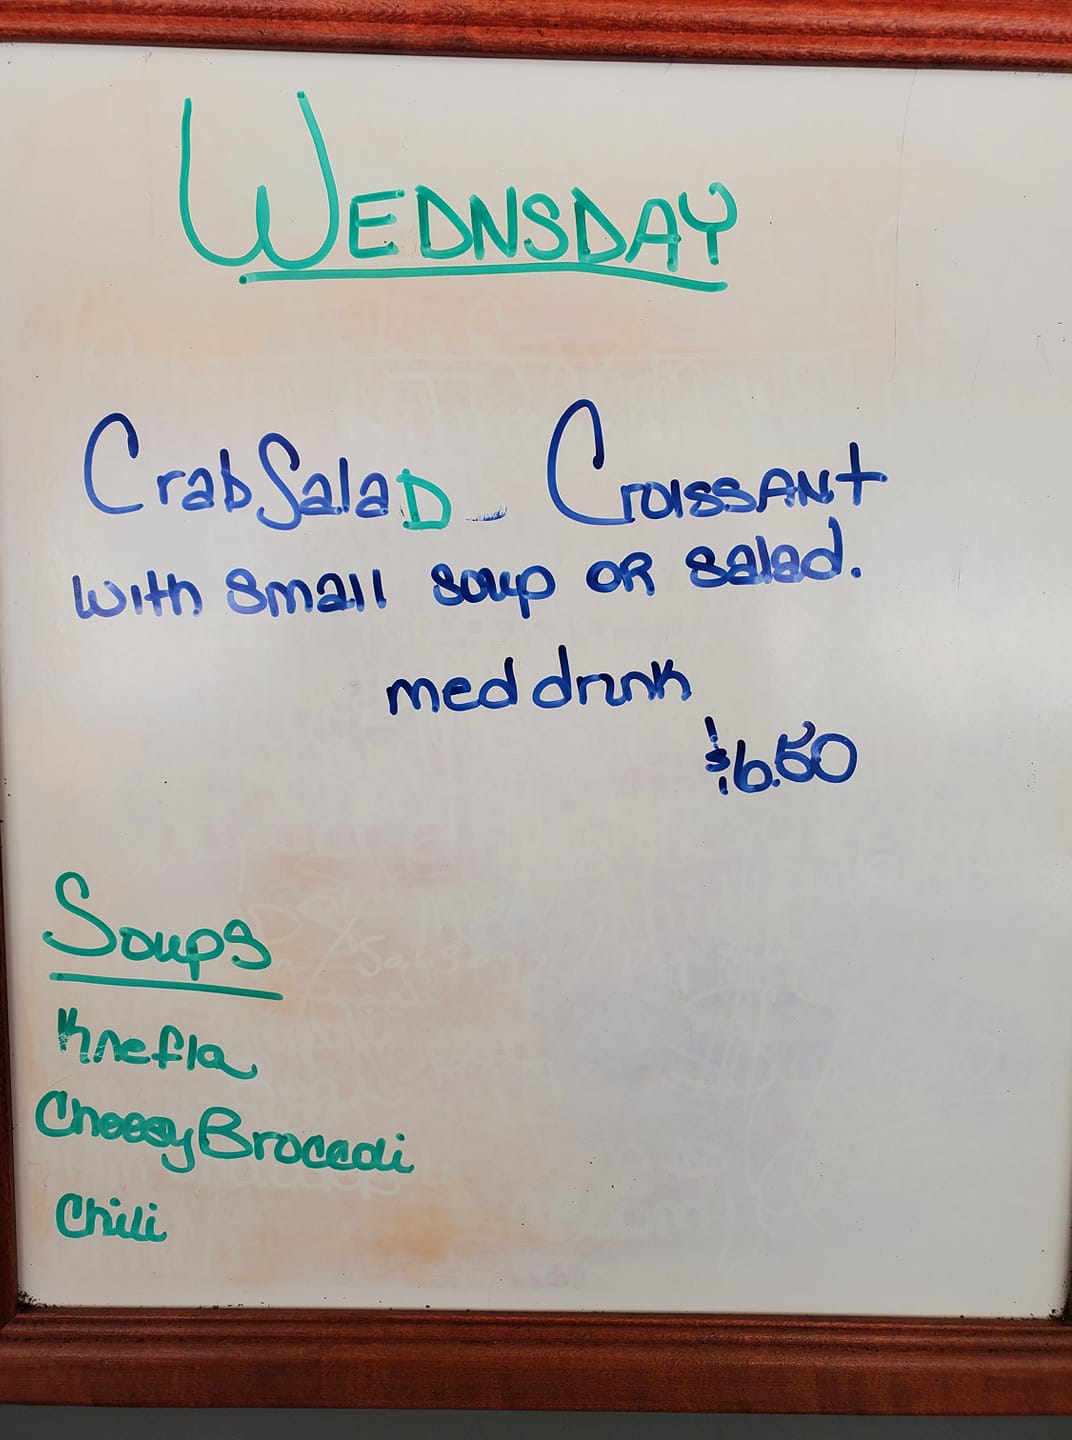 WEDNSDAY
Crab SalaD - CroissANt
with small soup OR salad.
med drink
$6.50
Soups
Knefla
Cheesy Broccoli
Chili